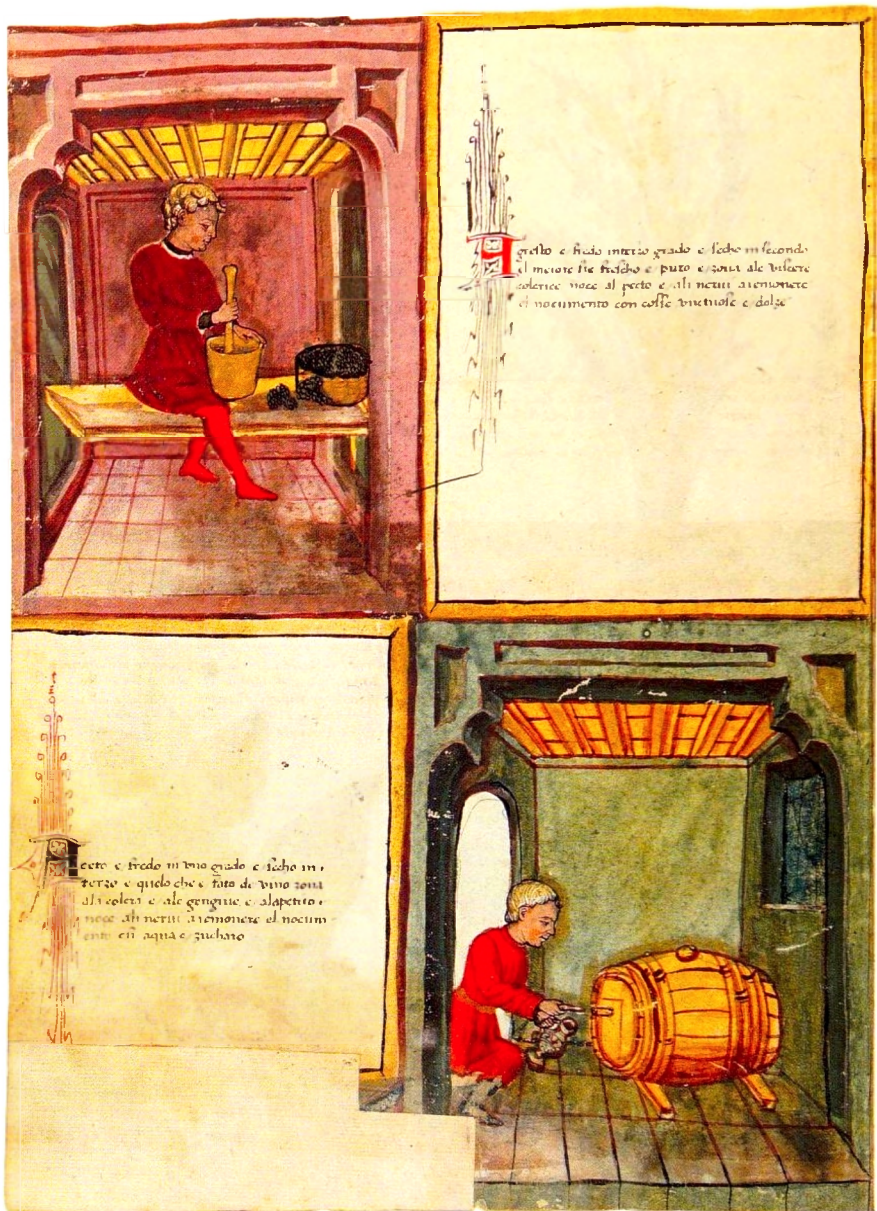 Agresto e fredo interzo grado e secho in secondo
el meiore sie frescho e puro e zoua ale viscere
colerice noce al pecto e ali nerui a remouere
el nocumento con cosse vnctuose e dolze
Aceto e fredo in vno grado e secho in
terzo e quelo che e fato de vino zoua
ala colera e ale gengiue e alapetito
noce ali nerui a remouere el nocum
ento cũ aqua e zucharo